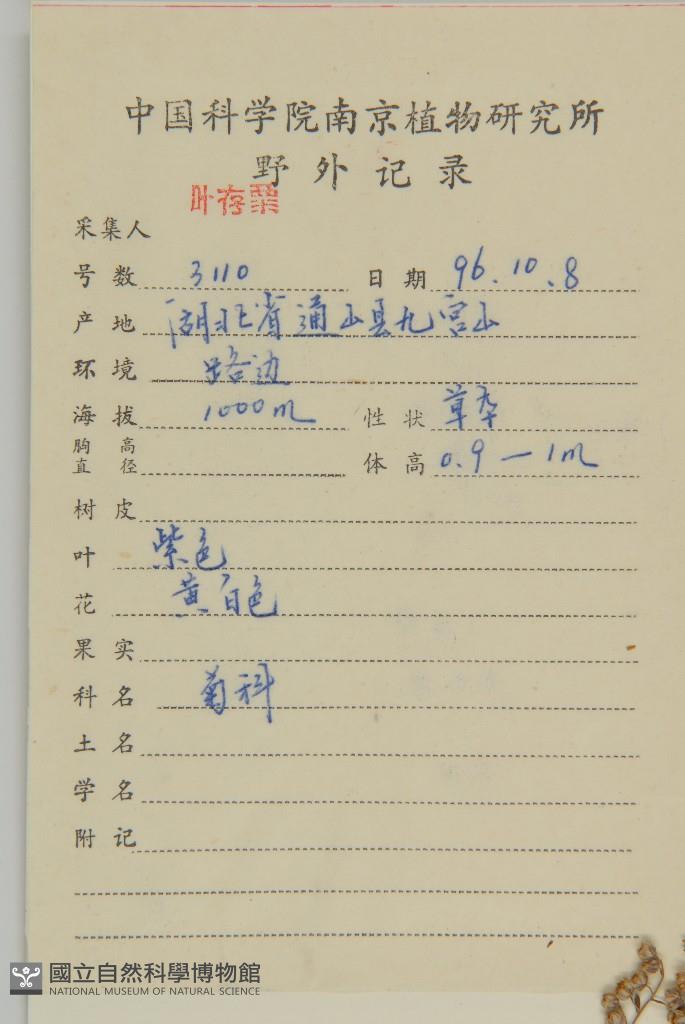 中国科学院南京植物研究所
野外记录
叶存粟
采集人
号数 3110 日期 96.10.8
产地 湖北省通山县九宫山
环境 路边
海拔 1000m 性状 草本
胸高直径 体高 0.9—1m
树皮
叶 紫色
花 黄白色
果实
科名 菊科
土名
学名
附记
國立自然科學博物館
NATIONAL MUSEUM OF NATURAL SCIENCE